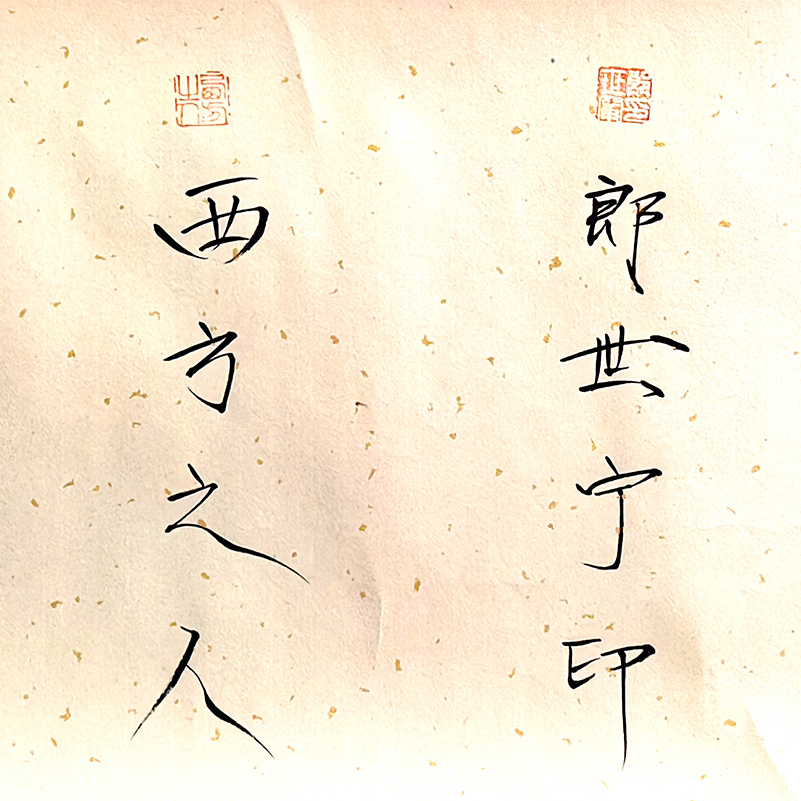 郎世宁印
西方之人